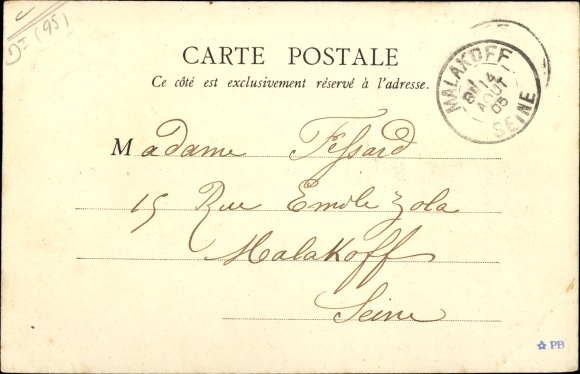 (95)
CARTE POSTALE
Ce côté est exclusivement réservé à l'adresse.
MALAKOFF
14
AOUT
05
SEINE
Madame Fessard
15 Rue Emile Zola
Malakoff
Seine
PB